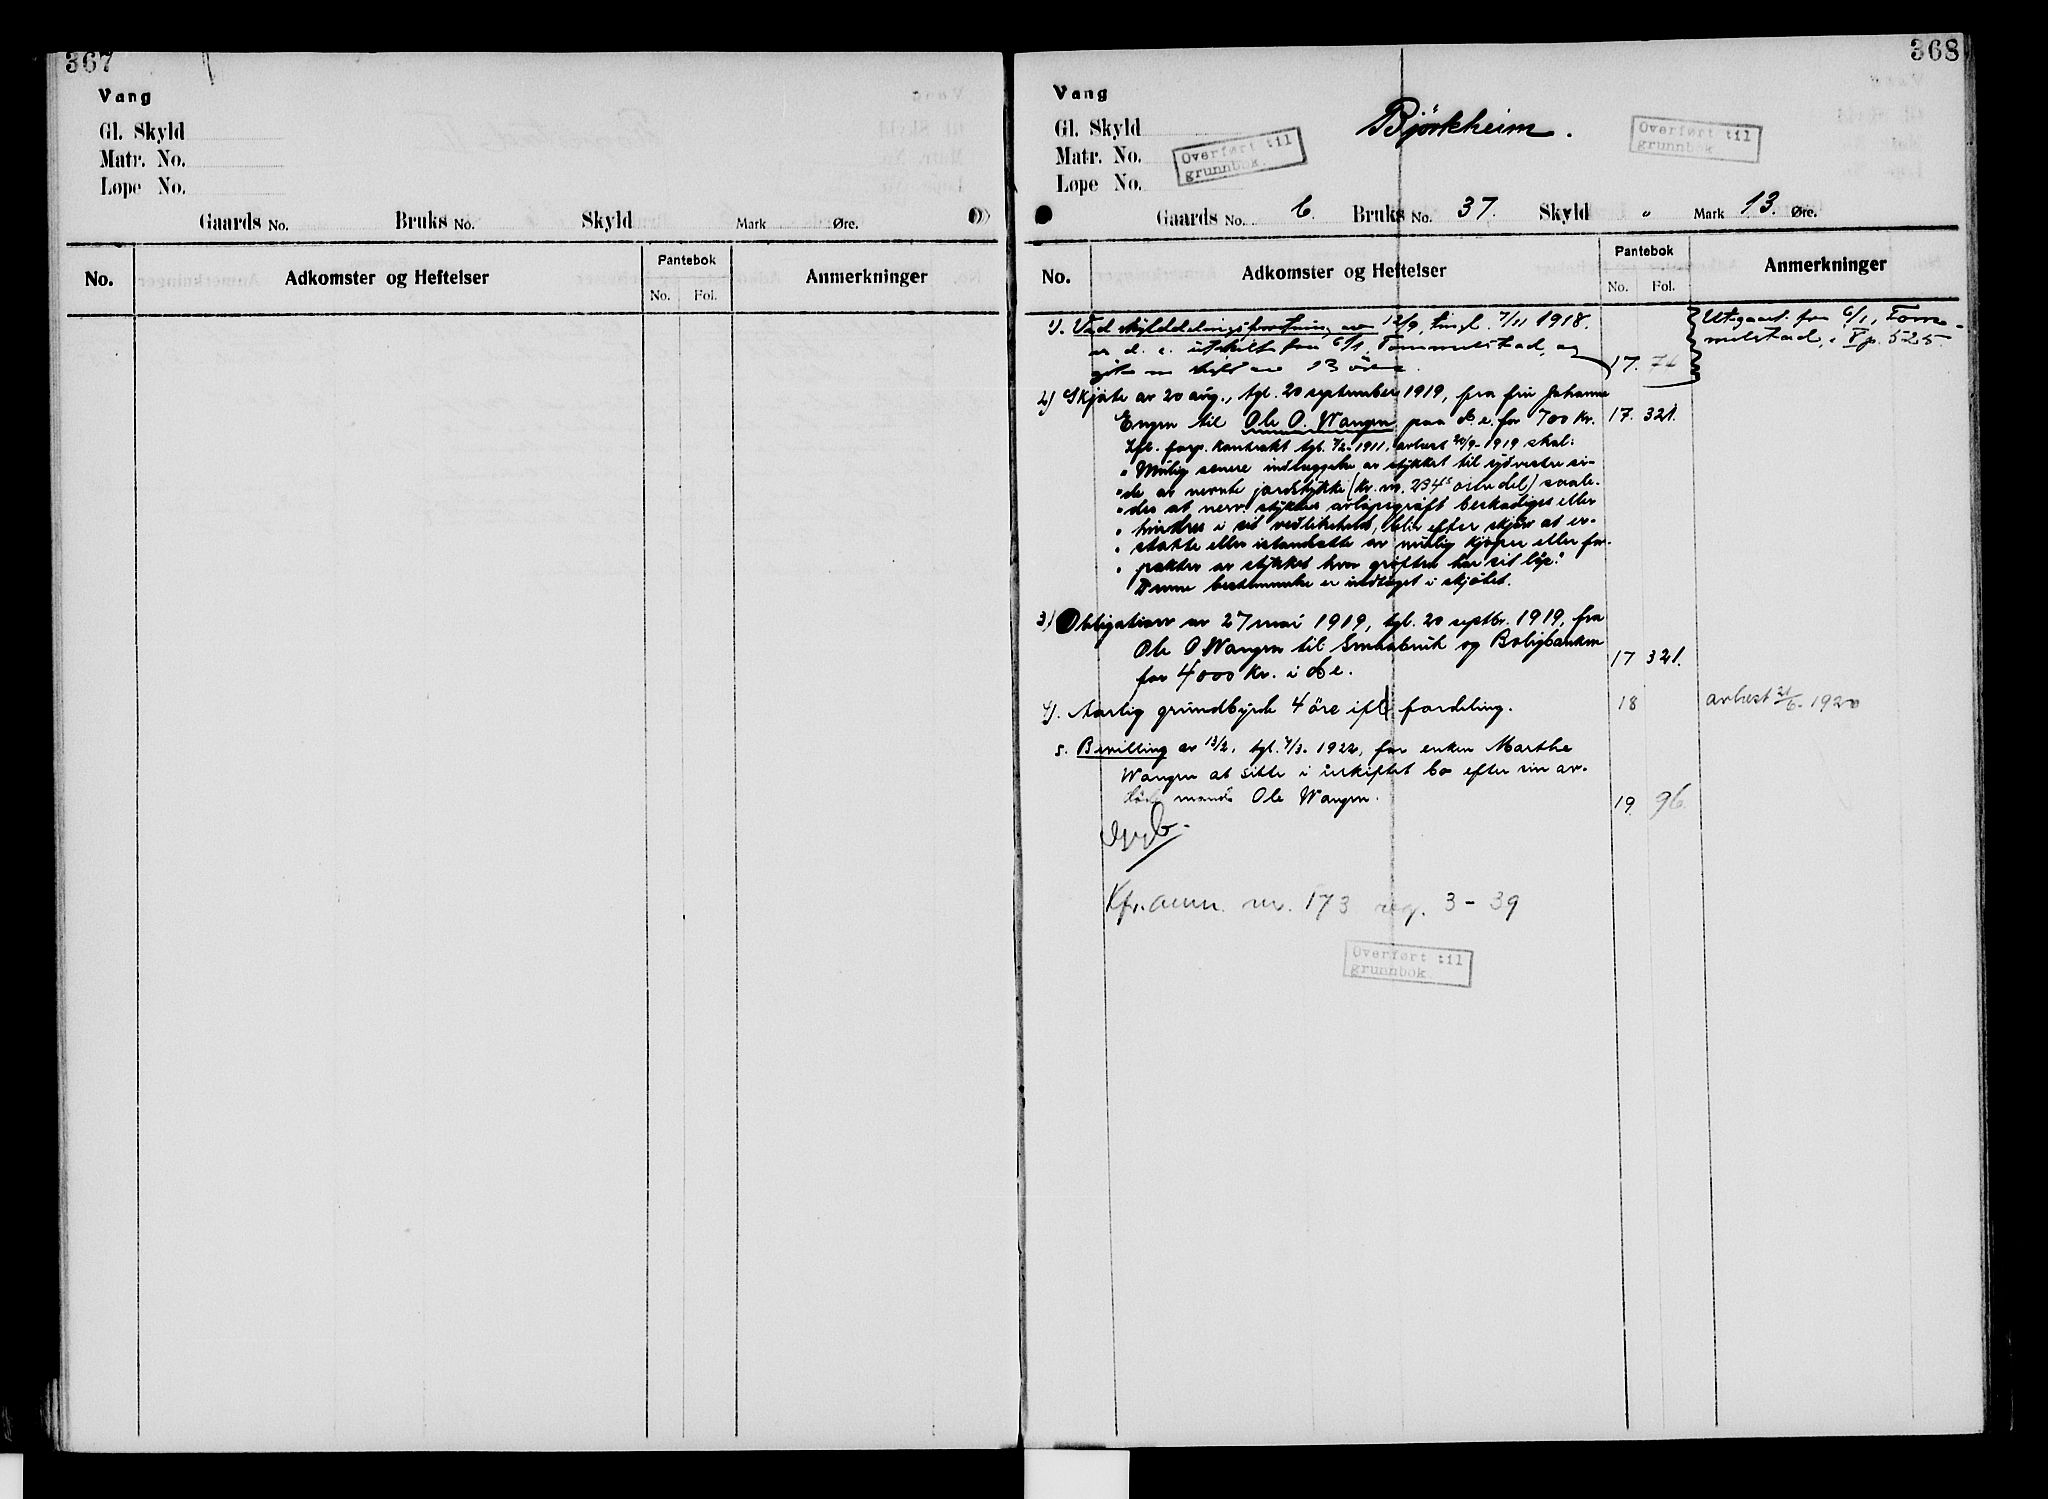 367
Vang
Gl. Skyld
Matr. No.
Løpe No.
Gaards No. Bruks No. Skyld Mark Øre.
No. Adkomster og Heftelser Pantebok Anmerkninger
No. Fol.
368
Vang
Gl. Skyld
Matr. No.
Løpe No.
Björkheim.
Overført til
grunnbok.
Overført til
grunnbok.
Gaards No. 6. Bruks No. 37. Skyld " Mark 13. Øre.
No. Adkomster og Heftelser Pantebok Anmerkninger
No. Fol.
1). Ved skylddelingsforretning av 12/9, tingl. 7/11 1918.
er d. e. utskilt fra 6/1 Tommelstad, og
git en skyld av 13 öre. 17. 74
Utgaaet fra 6/1, Tom-
melstad, i V p. 525
2) Skjöte av 20 aug., tgl. 20 september 1919, fra fru Johanne
Engen til Ole O. Wangen paa d. e. for 700 Kr. 17. 321.
Ifl. forp. kontrakt tgl. 7/2-1911, avlæst 20/9-1919 skal:
" Mulig senere indlæggelse av stykket til sydvestre si-
" de av nævnte jordstykke (Kr. no. 234s övre del) saale-
" des at nævn. stykkes avlöpsgröft beskadiges eller
" hindres i sit vedlikehold, blir efter skjön at er-
" statte eller istandsætte av mulig kjöper eller for-
" pakter av stykket hvor gröften har sit löp."
Denne bestemmelse er indtaget i skjötet.
3) Obligation av 27 mai 1919, tgl. 20 septbr. 1919, fra
Ole O Wangen til Smaabruk og Boligbanken
for 4000 Kr. i d e. 17 321.
4). Aarlig grundbyrde 4 öre ifl. fordeling. 18 avlæst 21/6-1920
5. Bevilling av 13/2, tgl. 7/3-1922, for enken Marthe
Wangen at sitte i uskiftet bo efter sin av-
døde mand Ole Wangen. 19. 96.
Kfr. anm. nr. 173 reg. 3-39
Overført til
grunnbok.